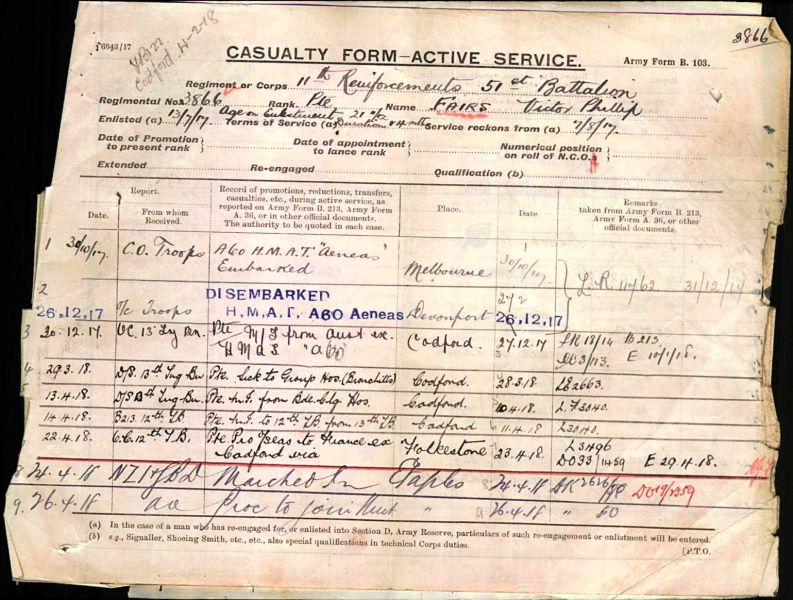 3866
16643/17
Codford 4-2-18
CASUALTY FORM—ACTIVE SERVICE.
Army Form B. 103.
Regiment or Corps 11th Reinforcements 51st Battalion
Regimental No. 3866 Rank Pte Name FAIRS Victor Phillip
Enlisted (a) 13/7/17. Age on Enlistment 21 Terms of Service (a) Duration & 4 mths Service reckons from (a) 7/8/17.
Date of Promotion to present rank } Date of appointment to lance rank } Numerical position on roll of N.C.Os. }
Extended Re-engaged Qualification (b)
Report. Record of promotions, reductions, transfers, casualties, etc., during active service, as reported on Army Form B. 213, Army Form A. 36, or in other official documents. The authority to be quoted in each case. Place. Date Remarks taken from Army Form B. 213, Army Form A. 36, or other official documents.
Date. From whom Received.
1 30/10/17. C.O. Troops A60 H.M.A.T. "Aeneas" Embarked Melbourne 1 30/10/17. L.R. 11462 31/12/17
2 26.12.17 O/c Troops DISEMBARKED H.M.A.T. A60 Aeneas Devonport 26.12.17
3 30.12.17. O.C. 13th Trg Bn. Pte M/I from Aust ex HMAS "A60" Codford. 27.12.17 LK 18/14 B213. DO3/113. E 10/1/18.
4 29.3.18. D/S. 13th Trg Bn Pte Sick to Group Hos. (Bronchitis) Codford. 28.3.18 L22663.
13.4.18. D/S 13th Trg Bn. Pte M.I. from Bde Clg Hos. Codford. 10.4.18. L.23040.
14.4.18. B213. 12th T.B. Pte M.I. to 12th T.B. from 13th T.B. Codford 11.4.18 L3040.
22.4.18. O.C. 12th T.B. Pte Pro O/seas to France ex Codford via Folkestone 23.4.18. L3496 DO33/1459 E 29.4.18.
8 24.4.18 Marched In Etaples 8 24.4.18 DO19/2359
9. 26.4.18 do Proc to join Unit " 9 26.4.18 " 50
(a) In the case of a man who has re-engaged for, or enlisted into Section D, Army Reserve, particulars of such re-engagement or enlistment will be entered.
(b) e.g., Signaller, Shoeing Smith, etc., etc., also special qualifications in technical Corps duties.
[P.T.O.